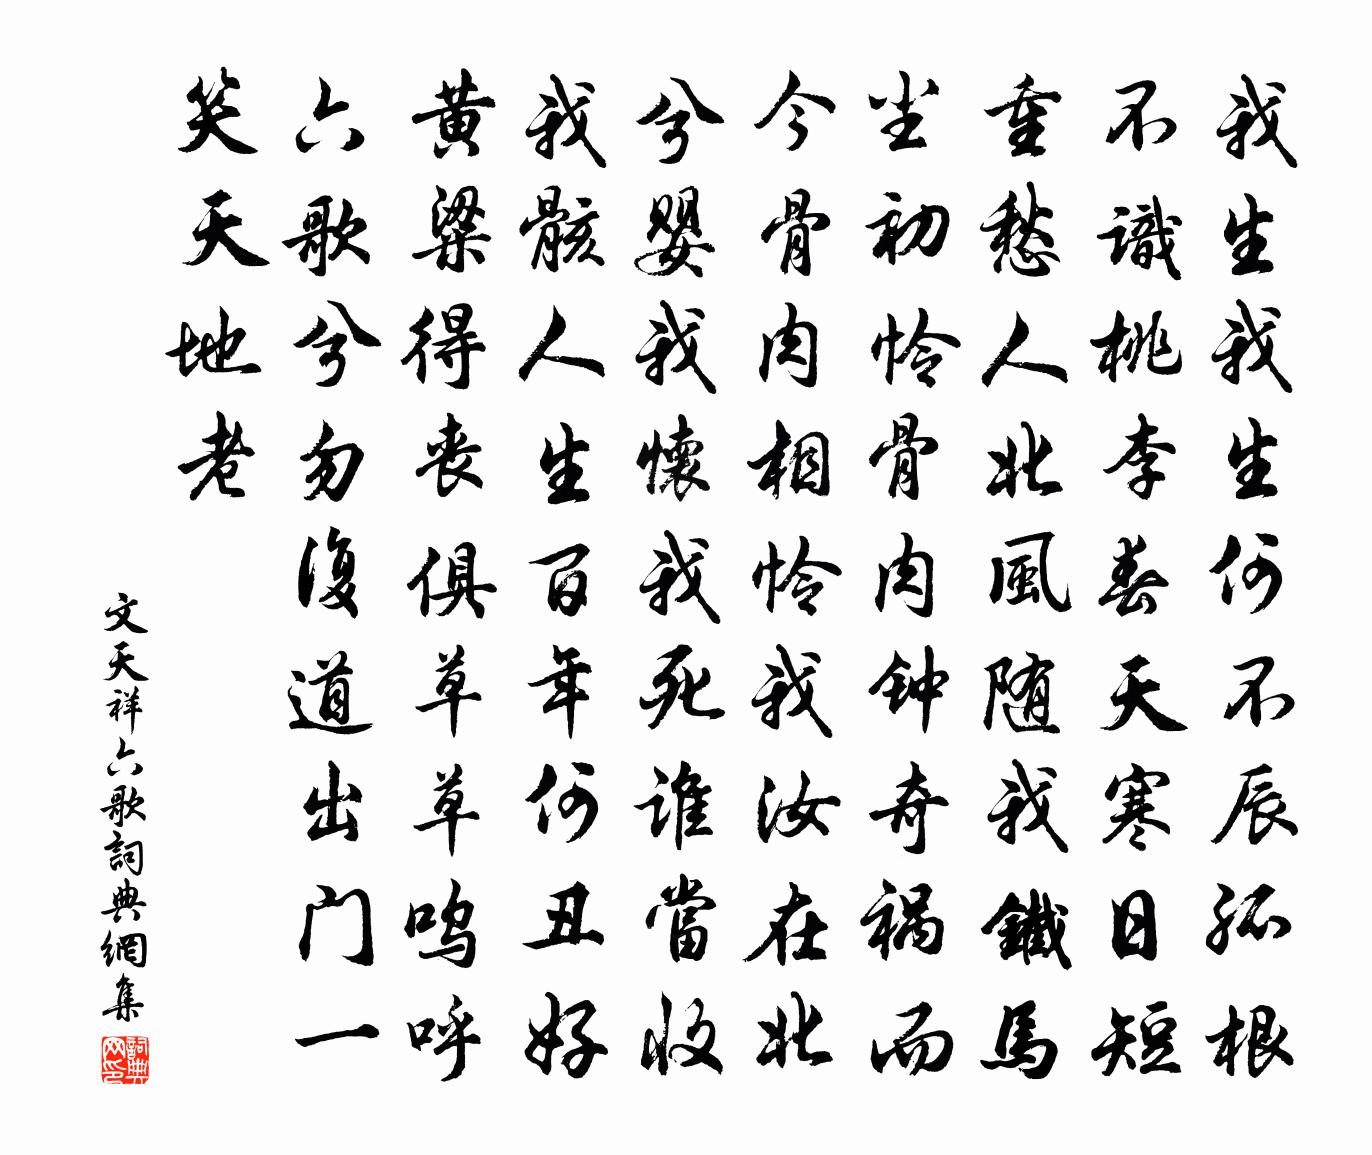 我生我生何不辰孤根
不識桃李春天寒日短
重愁人北風随我鐵馬
尘初怜骨肉钟奇祸而
今骨肉相怜我汝在北
兮嬰我懷我死誰當收
我骸人生百年何丑好
黄粱得丧俱草草呜呼
六歌兮勿復道出门一
笑天地老
文天祥六歌詞典網集
詞典网印